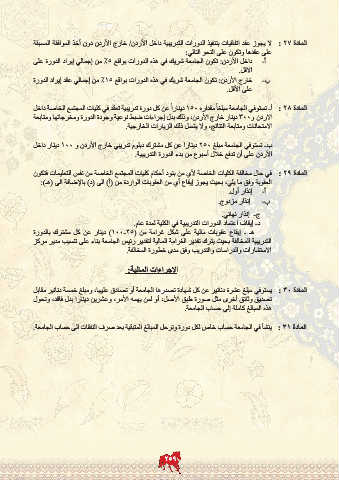 المادة ٢٧ : لا يجوز عقد اتفاقيات بتنفيذ الدورات التدريبية داخل الأردن/ خارج الأردن دون أخذ الموافقة المسبقة
على عقدها وتكون على النحو التالي:
أ- داخل الأردن: تكون الجامعة شريك في هذه الدورات بواقع ٥٪ من إجمالي إيراد الدورة على
الأقل.
ب- خارج الأردن: تكون الجامعة شريك في هذه الدورات بواقع ١٥٪ من إجمالي عقد إيراد الدورة
على الأقل.
المادة ٢٨ : أ- تستوفي الجامعة مبلغاً مقداره ١٥٠ ديناراً عن كل دورة تدريبية تعقد في كليات المجتمع الخاصة داخل
الأردن و٣٠٠ دينار خارج الأردن، وذلك بدل إجراءات ضبط نوعية وجودة الدورة ومخرجاتها ومتابعة
الامتحانات ومتابعة النتائج، ولا يشمل ذلك الزيارات الخارجية.
ب- تستوفي الجامعة مبلغ ٢٥٠ ديناراً عن كل مشترك دبلوم تدريبي خارج الأردن و ١٠٠ دينار داخل
الأردن على أن تدفع خلال أسبوع من بدء الدورة التدريبية.
المادة ٢٩ : في حال مخالفة الكليات الخاصة لأي من بنود أحكام كليات المجتمع الخاصة من نفس التعليمات فتكون
العقوبة وفق ما يلي، بحيث يجوز إيقاع أي من العقوبات الواردة من (أ) الى (د) بالإضافة الى (هـ):
أ- إنذار أول.
ب- إنذار مزدوج.
ج- إنذار نهائي.
د- إيقاف اعتماد الدورات التدريبية في الكلية لمدة عام.
هـ - إيقاع عقوبات مالية على شكل غرامة من (٢٥-١٠٠) دينار عن كل مشترك بالدورة
التدريبية المخالفة بحيث يترك تقدير الغرامة المالية لتقدير رئيس الجامعة بناء على تنسيب مدير مركز
الاستشارات والدراسات والتدريب وفق مدى خطورة المخالفة.
الإجراءات المالية:
المادة ٣٠ : يستوفى مبلغ عشرة دنانير عن كل شهادة تصدرها الجامعة أو تصادق عليها، ومبلغ خمسة دنانير مقابل
تصديق وثائق أخرى مثل صورة طبق الأصل، أو لمن يهمه الأمر، وعشرين ديناراً بدل فاقد، وتحول
هذه المبالغ كاملة إلى حساب الجامعة.
المادة ٣١ : ينشأ في الجامعة حساب خاص لكل دورة وترحل المبالغ المتبقية بعد صرف النفقات الى حساب الجامعة.